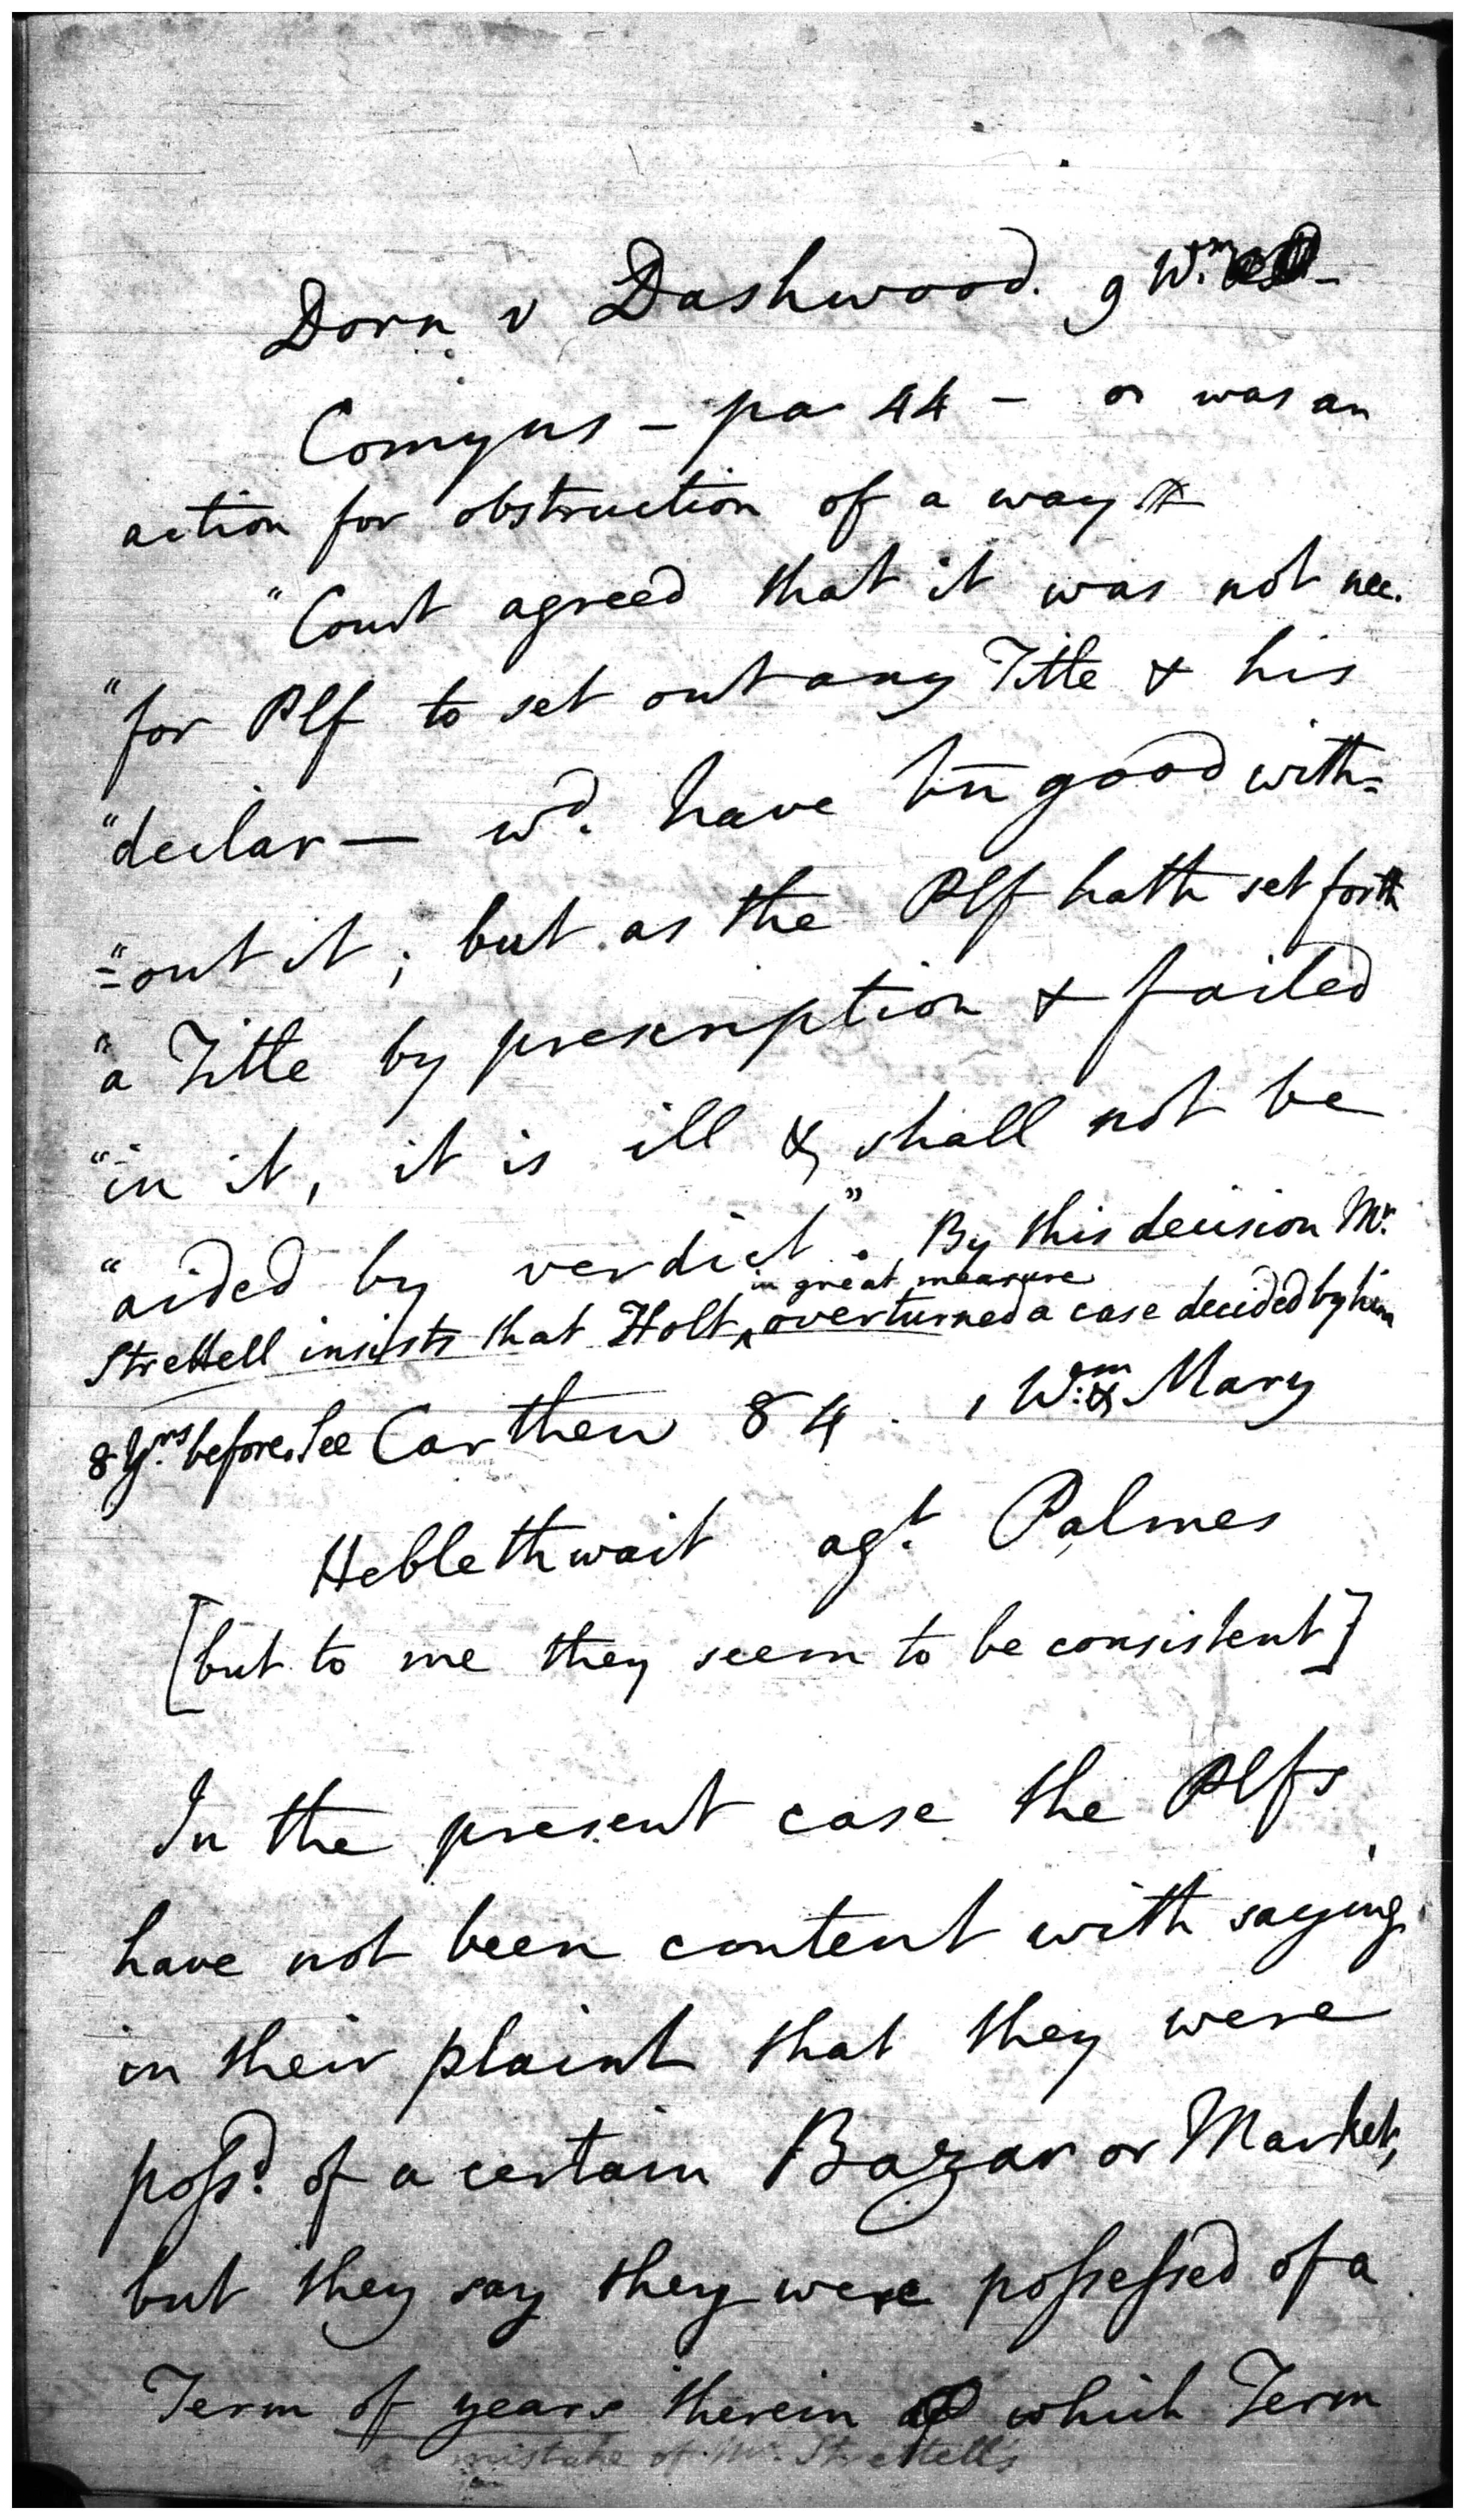 Dorn v Dashwood. 9 Wm.
Comyns - pa 44 - was an
action for obstruction of a way &
"Court agreed that it was not nec.
"for Plf to set out any Title & his
"declar — wd. have bn good with=
"=out it; but as the Plf hath set forth
"a Title by prescription & failed
"in it, it is ill & shall not be
"aided by verdict". By this decision Mr.
in great measure
Strettell insists that Holt ^ overturned a case decided by him
8 Yrs. before. See Carthew 84. 1 Wm. & Mary
Heblethwait agt. Palmes
[but to me they seem to be consistent]
In the present case the Plfs
have not been content with saying
in their plaint that they were
possd. of a certain Bazar or Market,
but they say they were possessed of a
Term of years therein which Term
a mistake of Mr. Strettell's